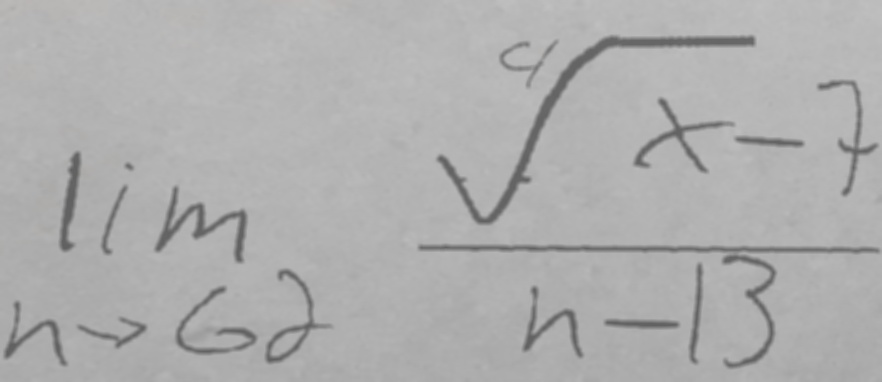 lim n→62 \frac{\sqrt[4]{x-7}}{n-13}